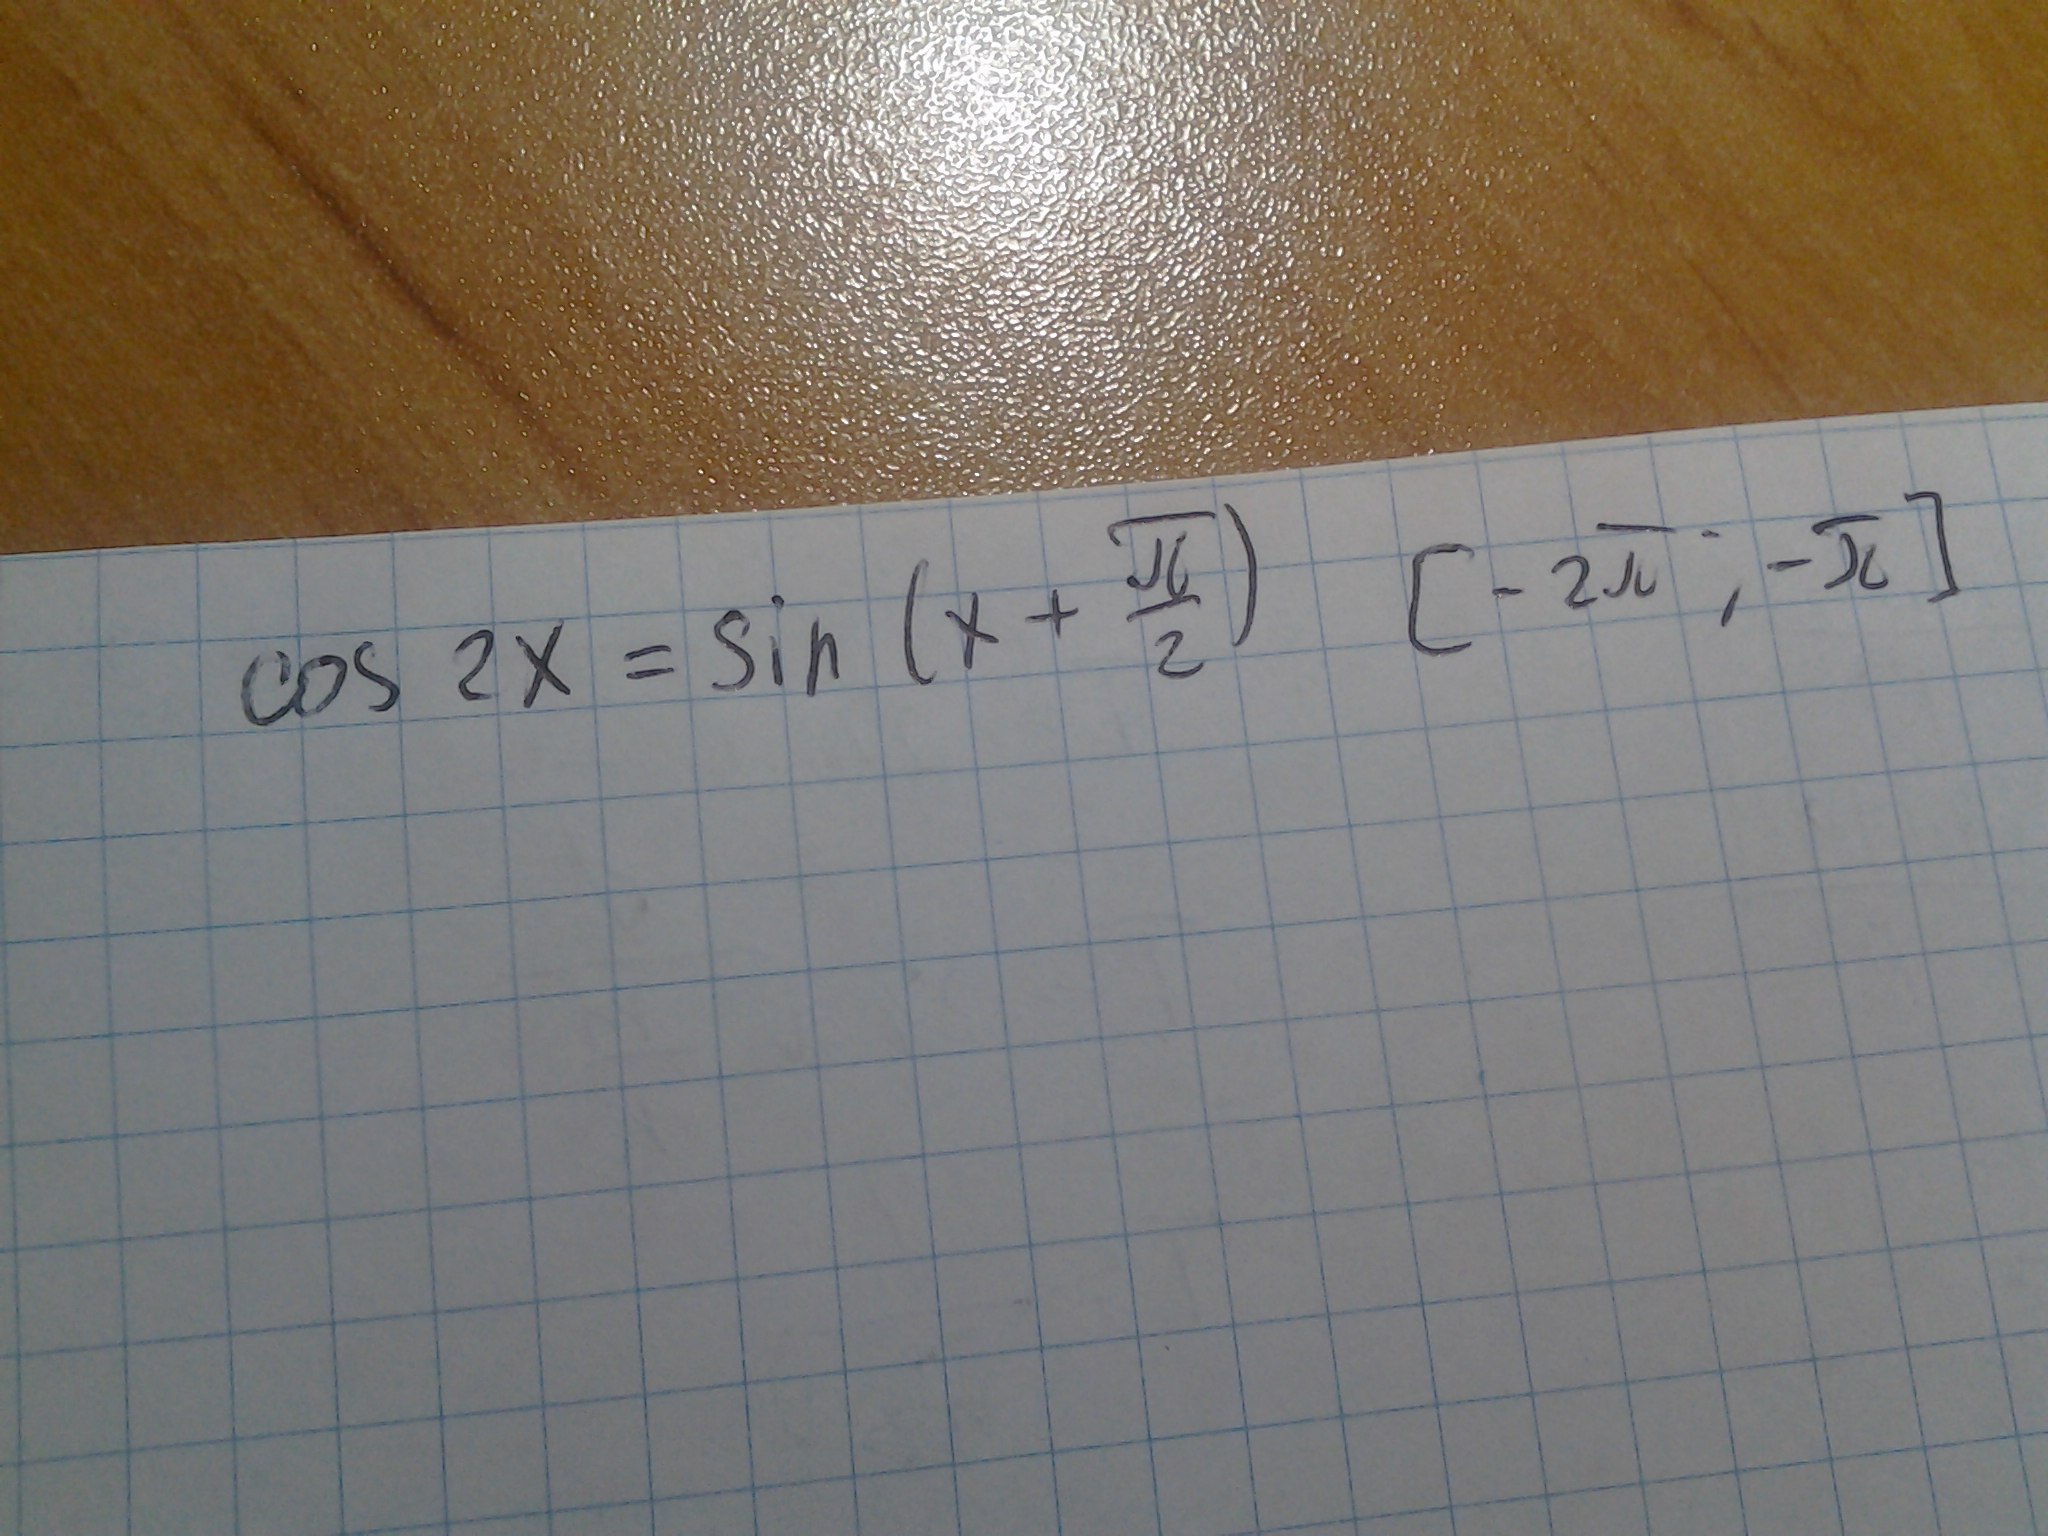 cos 2x = sin (x + π/2) [-2π; -π]